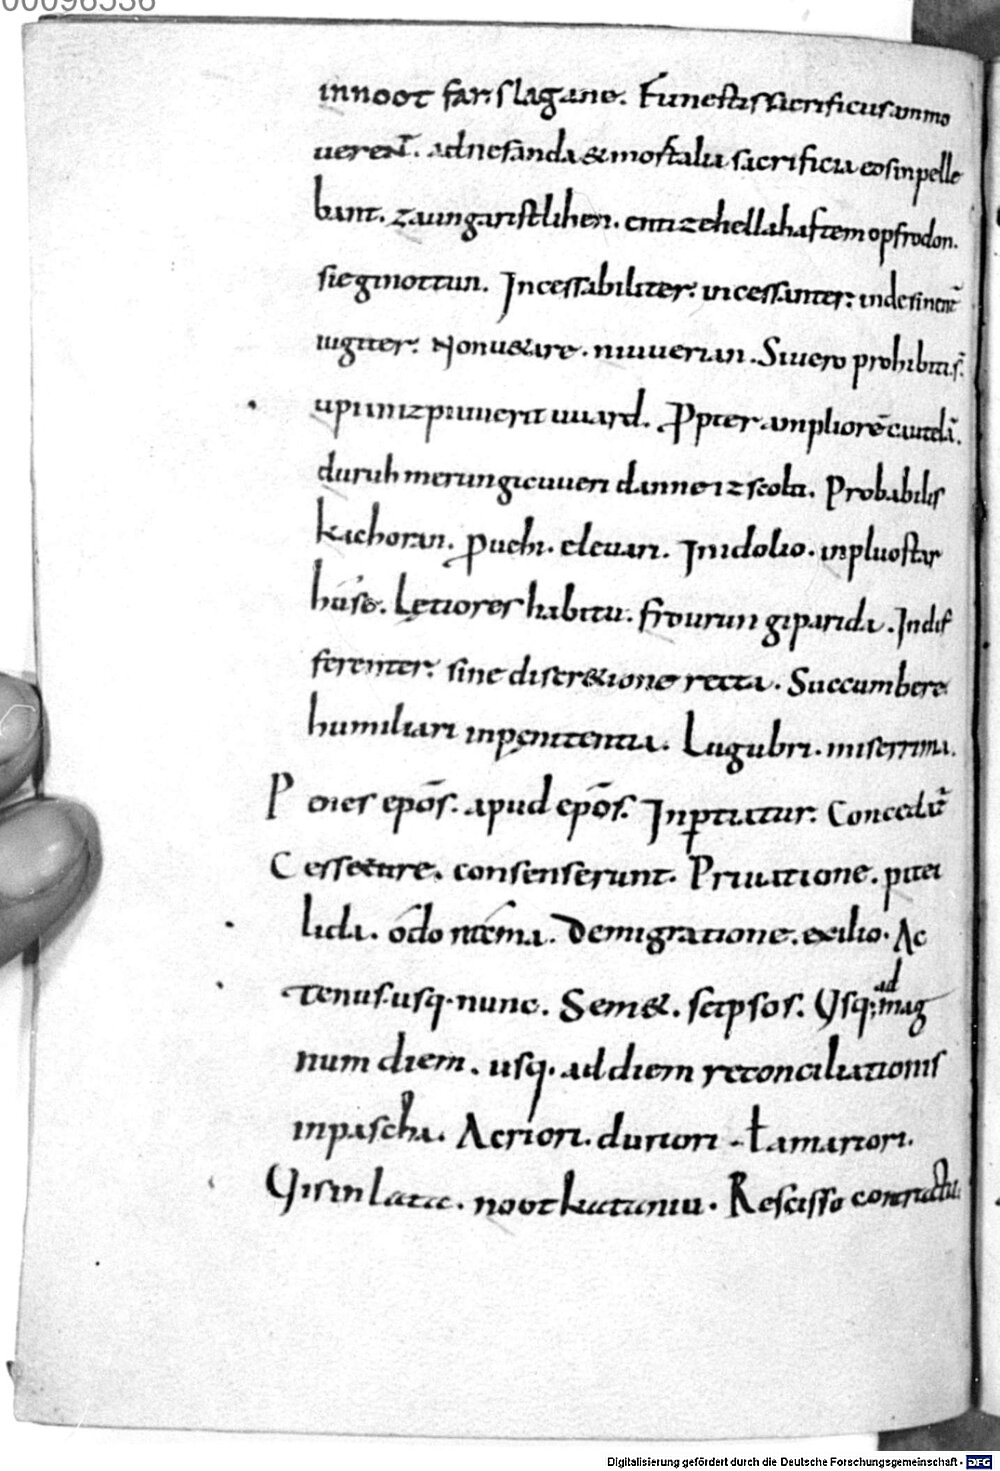 00096536
innoot farslagane. Funestissacrificusammo
uerent̄. adnefanda &mortalia sacrificia eosinpelle
bant. zaungaristlihen. enti zehellahaftem opfrodon.
sieginottun. Incessabiliter. incessanter. indesinent̄
iugiter. Nonuetare. niuuerian. Siuero prohibitiſ̄.
upi imiz piuuerit uuard. Ppter ampliorē cautelā.
duruh merungicuueri danne iz scolti. Probabilis
kachoran. puehi. eleuari. Inidolio. inpluostar
huse. Lętiores habitu. frourun giparida. Indif
ferenter. sine discretione recta. Succumbere
humiliari inpęnitentia. Lugubri. miserrima.
P oies epōs. apud epōs. Inptiatur. Concedat̄
C essecure. consenserunt. Priuatione. pitei
lida. odo naema. Demigratione. exilio. Ac
tenus. usq. nunc. Semet. seipsos. Usq; ad mag
num diem. usq. ad diem reconciliationis
inpascha. Acriori. duriori. ł amariori.
Uisinlata. nootkiataniu. Rescisso contractu.
Digitalisierung gefördert durch die Deutsche Forschungsgemeinschaft - DFG